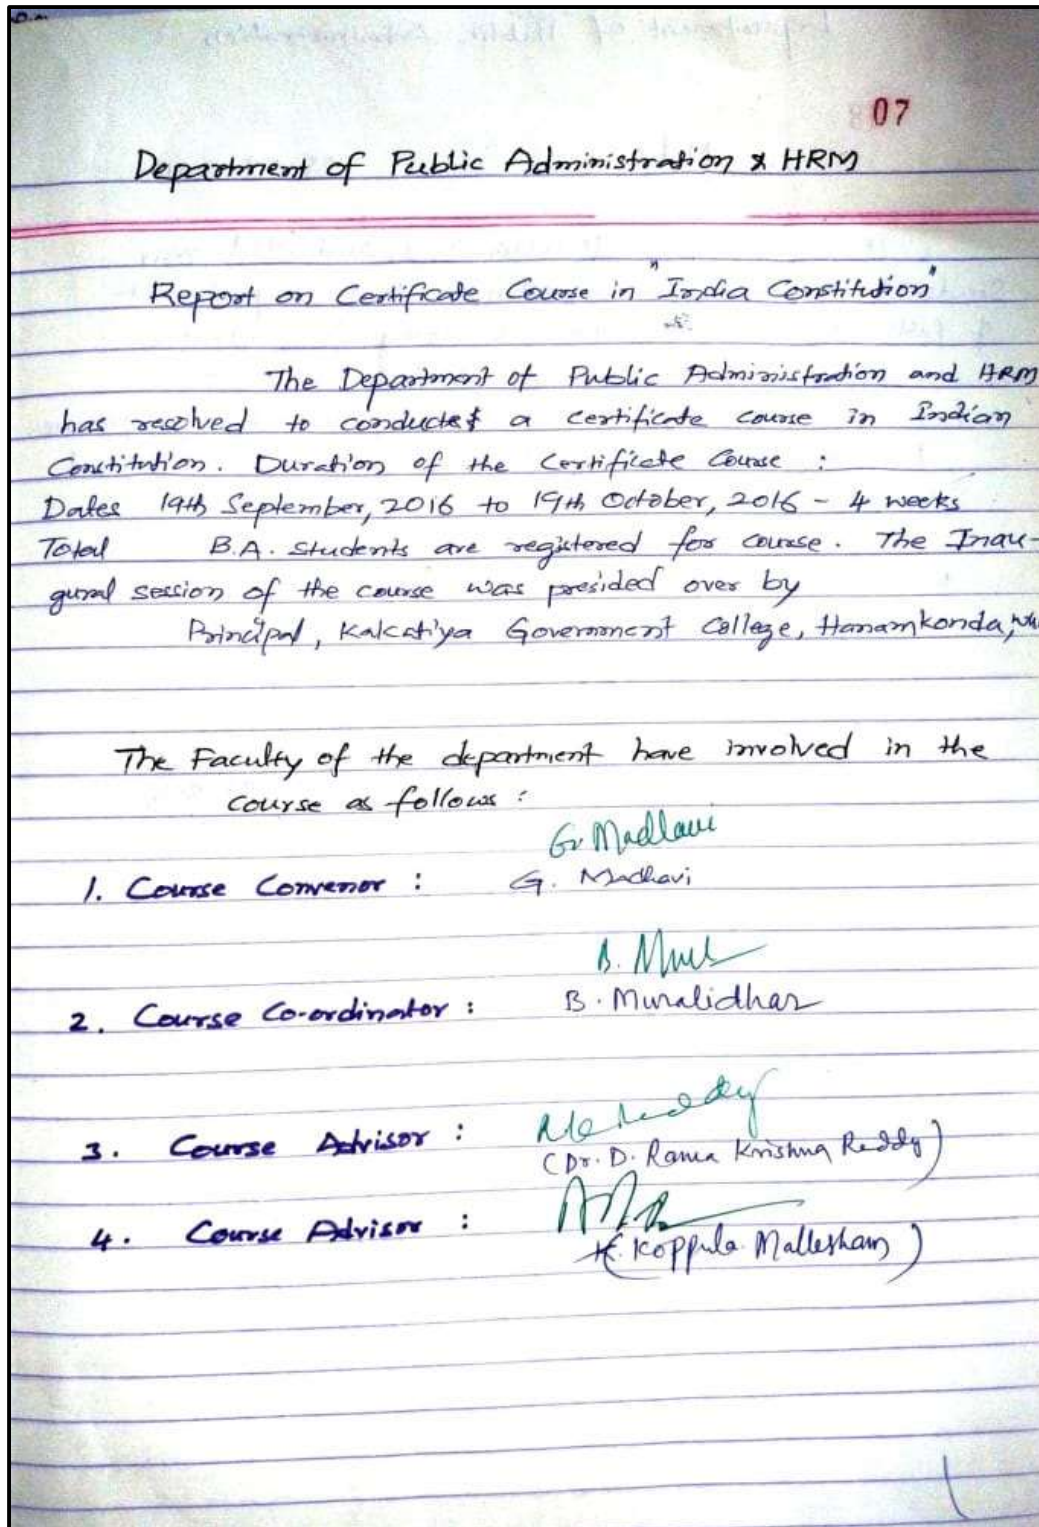 07
Department of Public Administration & HRM
Report on Certificate Course in "India Constitution"
The Department of Public Administration and HRM
has resolved to conduct a certificate course in Indian
Constitution. Duration of the Certificate Course :
Dates 19th September, 2016 to 19th October, 2016 - 4 weeks
Total B.A. students are registered for course. The Inau-
gural session of the course was presided over by
Principal, Kakatiya Government College, Hanamkonda,
The Faculty of the department have involved in the
course as follows :
G. Madhavi
1. Course Convenor : G. Madhavi
B.
2. Course Co-ordinator : B. Muralidhar
3. Course Advisor :
(Dr. D. Rama Krishna Reddy)
4. Course Advisor :
(Koppula Mallesham)